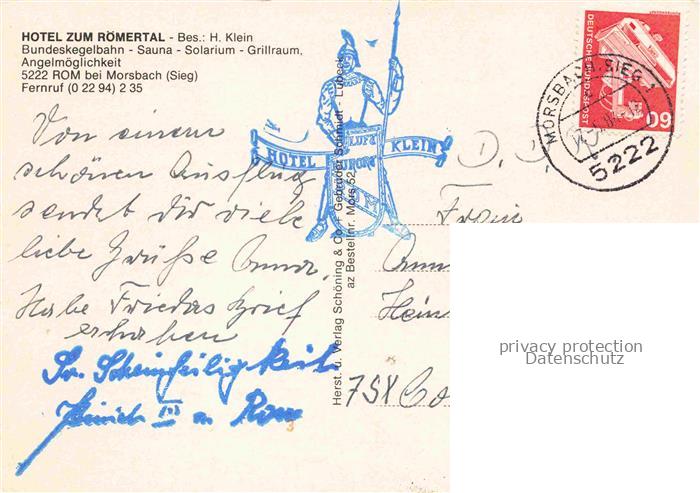 HOTEL ZUM RÖMERTAL - Bes.: H. Klein
Bundeskegelbahn - Sauna - Solarium - Grillraum,
Angelmöglichkeit
5222 ROM bei Morsbach (Sieg)
Fernruf (0 22 94) 2 35
Von einem
schönen Ausflug
sendet dir viele
liebe Grüße Anna.
Habe Friedas Brief
erhalten
Sr. Scheinheiligkeit
Heinrich III a Rom
LUFT
HOTEL KURORT KLEIN
ROM
Herst. u. Verlag Schöning & Co. + Gebrüder Schmidt - Lübeck
az Bestellnr. Mors 52
DEUTSCHE BUNDESPOST
60
MORSBACH, SIEG 1
5222
Frau
privacy protection
Datenschutz